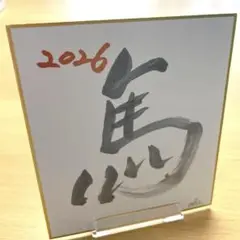 2026
馬